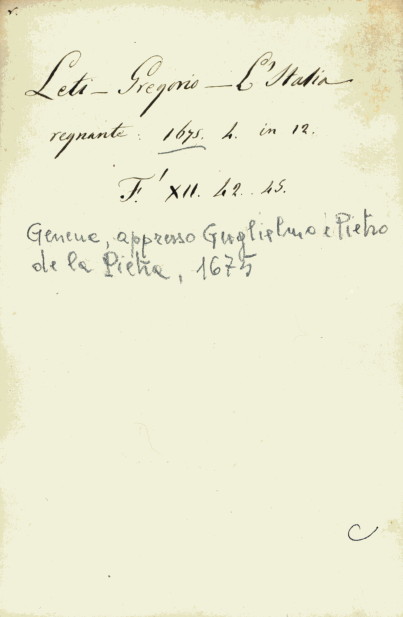 Leti - Gregorio - L'Italia
regnante. 1675. 4. in 12.
F.' XII. 42. 45.
Geneva, appresso Guglielmo e Pietro
de la Pietra, 1675